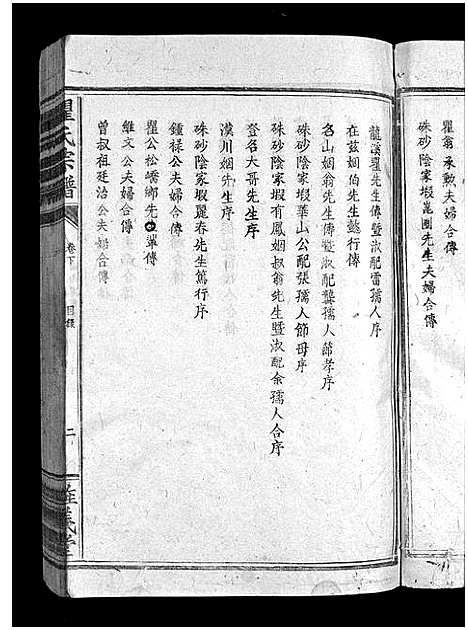 瞿翁承勲夫婦合傳
硃砂陰家塅崑圃先生夫婦合傳
龍溪瞿先生傳暨淑配雷孺人序
在茲姻伯先生懿行傳
名山姻翁先生傳暨淑配龔孺人節孝序
硃砂陰家塅華山公配張孺人節母序
硃砂陰家塅有鳳姻叔翁先生暨淑配余孺人合序
登名大哥先生序
漢川姻先生序
硃砂陰家塅麗春先生篤行序
鍾祿公夫婦今傳
瞿公松嶠鄉先輩傳
維文公夫婦合傳
曾叔祖廷治公夫婦合傳
瞿氏宗譜
卷下
目錄
二